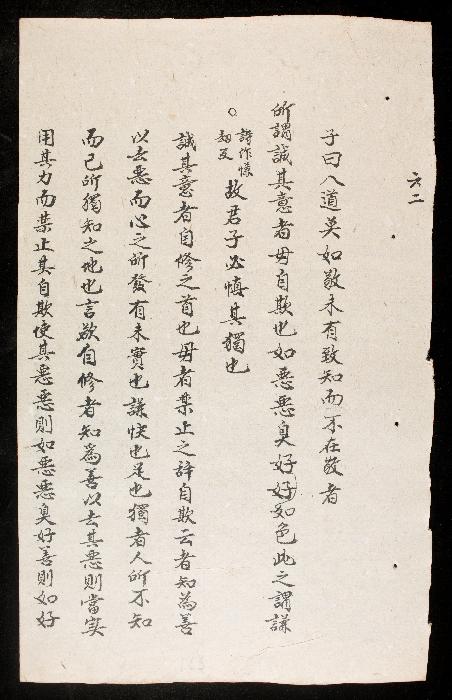 六二
子曰入道莫如敬未有致知而不在敬者
所謂誠其意者毋自欺也如惡惡臭好好如色此之謂謙
○詩作慊劫反故君子必慎其獨也
誠其意者自修之首也毋者禁止之辞自欺云者知為善
以去惡而心之所發有未實也謙快也足也獨者人所不知
而己所獨知之地也言欲自修者知為善以去其惡則當实
用其力而禁止其自欺使其惡惡則如惡惡臭好善則如好